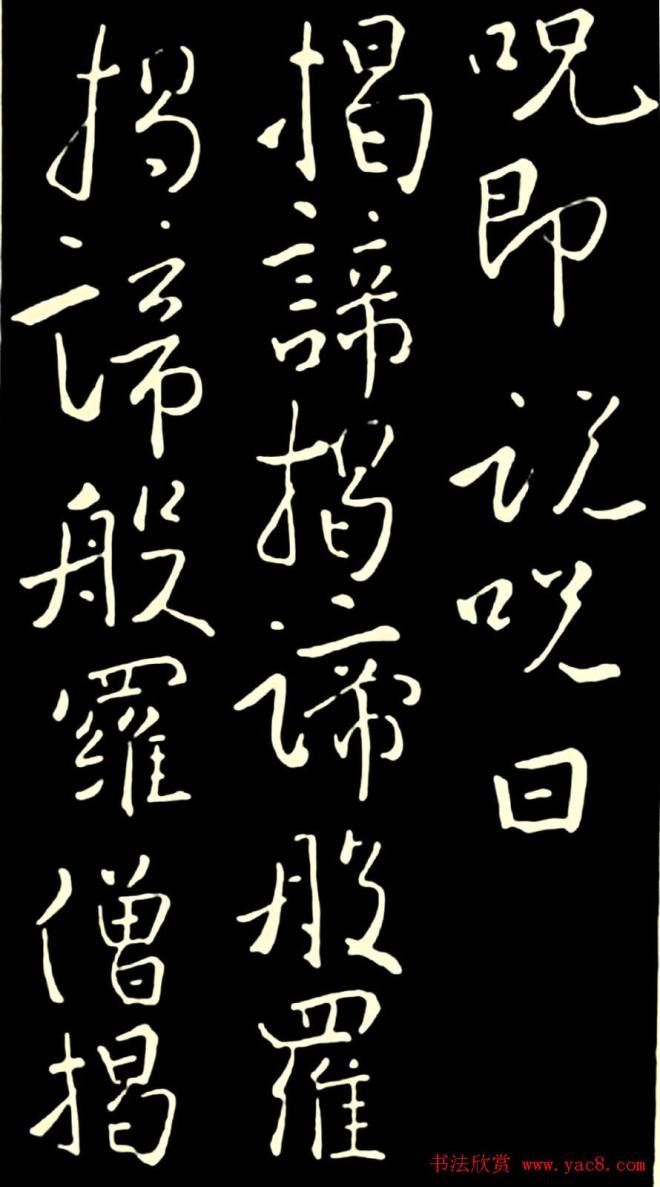 咒即说咒曰
揭諦揭諦般羅
揭諦般羅僧揭
书法欣赏 www.yac8.com